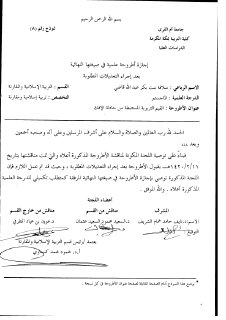 بسم الله الرحمن الرحيم
جامعة أم القرى
نموذج رقم (٨)
كلية التربية بمكة المكرمة
الدراسات العليا
إجازة أطروحة علمية في صيغتها النهائية
بعد إجراء التعديلات المطلوبة
الاسم الرباعي : سلافة بكر عبد الله قاضي
القسم : التربية الإسلامية والمقارنة
الدرجة العلمية : الماجستير
التخصص : تربية إسلامية ومقارنة
عنوان الأطروحة : القيم التربوية المستنبطة من حادثة الإفك
الحمد لله رب العالمين والصلاة والسلام على أشرف المرسلين وعلى آله وصحبه أجمعين
وبعد ...
فبناءً على توصية اللجنة المكونة لمناقشة الأطروحة المذكورة أعلاه والتي تمت مناقشتها بتاريخ
بقبول الأطروحة بعد إجراء التعديلات المطلوبة ، وحيث قد تم عمل اللازم فإن
اللجنة المذكورة توصي بإجازة الأطروحة في صيغتها النهائية المرفقة كمتطلب تكميلي للدرجة العلمية
المذكورة أعلاه . والله الموفق .
أعضاء اللجنة
المشرف
مناقش من القسم
مناقش من خارج القسم
يعتمد / رئيس قسم التربية الإسلامية والمقارنة